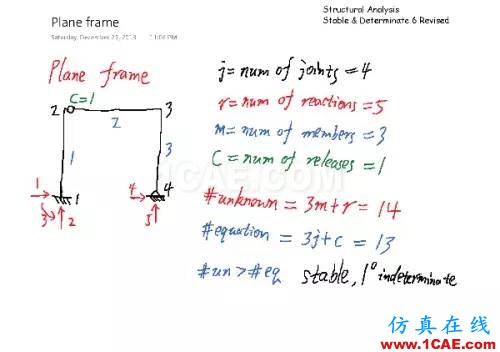 Structural Analysis
Stable & Determinate 6 Revised
Plane frame
Saturday, December 21, 2013 11:04 PM
Plane frame
j = num of joints = 4
r = num of reactions = 5
m = num of members = 3
C = num of releases = 1
#unknown = 3m+r = 14
#equation = 3j+c = 13
#un > #eq stable, 1° indeterminate
C=1
2 3
2
1 3
1 1 4 4
3 2 5
1CAE.COM
仿真在线
www.1CAE.com